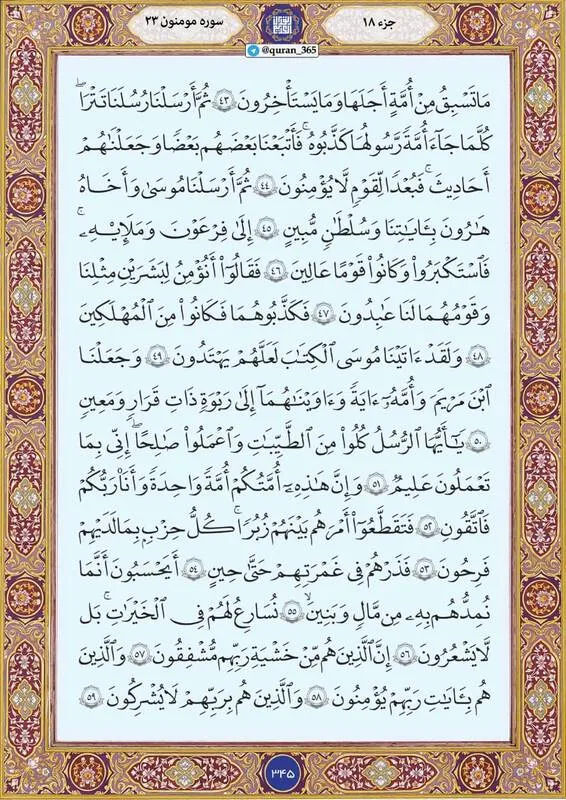 جزء ۱۸
سوره مومنون ۲۳
@quran_365
مَا تَسْبِقُ مِنْ أُمَّةٍ أَجَلَهَا وَمَا يَسْتَـْٔخِرُونَ ٤٣ ثُمَّ أَرْسَلْنَا رُسُلَنَا تَتْرَاۖ
كُلَّ مَا جَآءَ أُمَّةً رَّسُولُهَا كَذَّبُوهُۚ فَأَتْبَعْنَا بَعْضَهُم بَعْضًا وَجَعَلْنَٰهُمْ
أَحَادِيثَۚ فَبُعْدًا لِّقَوْمٍ لَّا يُؤْمِنُونَ ٤٤ ثُمَّ أَرْسَلْنَا مُوسَىٰ وَأَخَاهُ
هَٰرُونَ بِـَٔايَٰتِنَا وَسُلْطَٰنٍ مُّبِينٍ ٤٥ إِلَىٰ فِرْعَوْنَ وَمَلَإِي۟هِۦ
فَٱسْتَكْبَرُوا۟ وَكَانُوا۟ قَوْمًا عَالِينَ ٤٦ فَقَالُوٓا۟ أَنُؤْمِنُ لِبَشَرَيْنِ مِثْلِنَا
وَقَوْمُهُمَا لَنَا عَٰبِدُونَ ٤٧ فَكَذَّبُوهُمَا فَكَانُوا۟ مِنَ ٱلْمُهْلَكِينَ
٤٨ وَلَقَدْ ءَاتَيْنَا مُوسَى ٱلْكِتَٰبَ لَعَلَّهُمْ يَهْتَدُونَ ٤٩ وَجَعَلْنَا
ٱبْنَ مَرْيَمَ وَأُمَّهُۥٓ ءَايَةً وَءَاوَيْنَٰهُمَآ إِلَىٰ رَبْوَةٍ ذَاتِ قَرَارٍ وَمَعِينٍ
٥٠ يَٰٓأَيُّهَا ٱلرُّسُلُ كُلُوا۟ مِنَ ٱلطَّيِّبَٰتِ وَٱعْمَلُوا۟ صَٰلِحًاۖ إِنِّى بِمَا
تَعْمَلُونَ عَلِيمٌ ٥١ وَإِنَّ هَٰذِهِۦٓ أُمَّتُكُمْ أُمَّةً وَٰحِدَةً وَأَنَا۠ رَبُّكُمْ
فَٱتَّقُونِ ٥٢ فَتَقَطَّعُوٓا۟ أَمْرَهُم بَيْنَهُمْ زُبُرًاۖ كُلُّ حِزْبٍۭ بِمَا لَدَيْهِمْ
فَرِحُونَ ٥٣ فَذَرْهُمْ فِى غَمْرَتِهِمْ حَتَّىٰ حِينٍ ٥٤ أَيَحْسَبُونَ أَنَّمَا
نُمِدُّهُم بِهِۦ مِن مَّالٍ وَبَنِينَ ٥٥ نُسَارِعُ لَهُمْ فِى ٱلْخَيْرَٰتِۚ بَل
لَّا يَشْعُرُونَ ٥٦ إِنَّ ٱلَّذِينَ هُم مِّنْ خَشْيَةِ رَبِّهِم مُّشْفِقُونَ ٥٧ وَٱلَّذِينَ
هُم بِـَٔايَٰتِ رَبِّهِمْ يُؤْمِنُونَ ٥٨ وَٱلَّذِينَ هُم بِرَبِّهِمْ لَا يُشْرِكُونَ ٥٩
۳۴۵